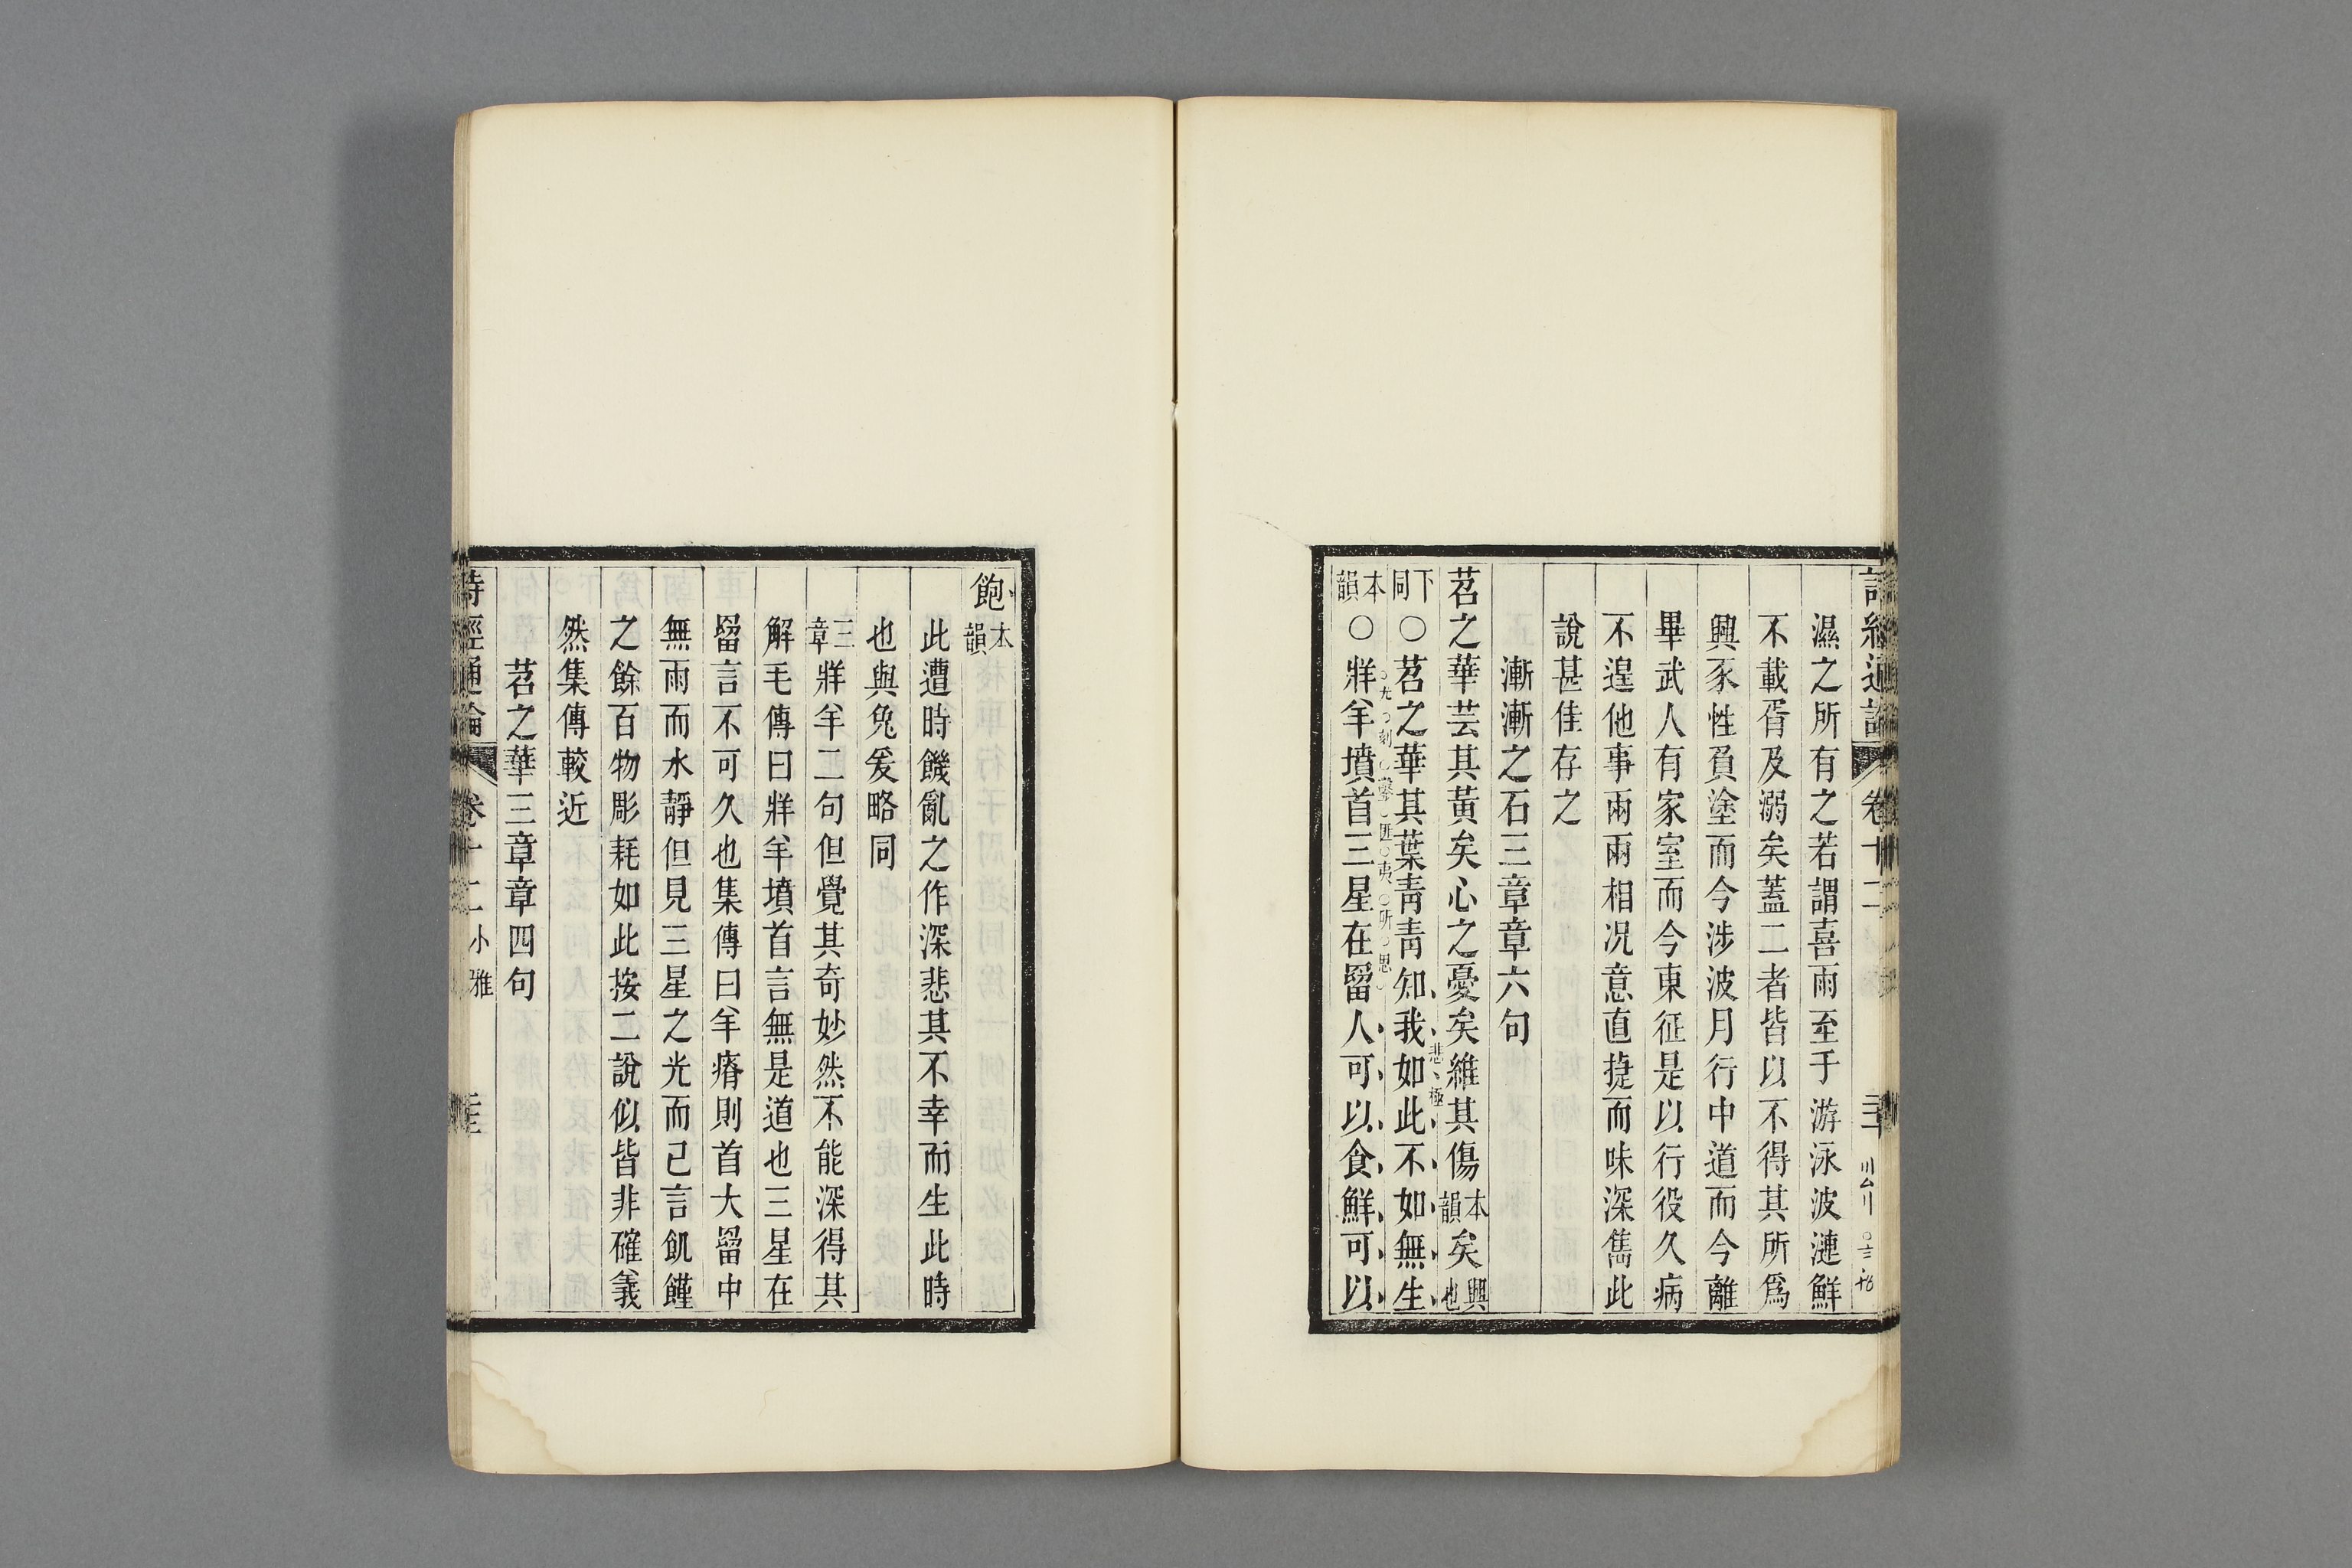 濕之所有之若謂喜雨至于游泳波漣鮮
不載胥及溺矣蓋二者皆以不得其所爲
興豕性負塗而今涉波月行中道而今離
畢武人有家室而今東征是以行役久病
不遑他事兩兩相况意直捷而味深雋此
說甚佳存之
漸漸之石三章章六句
苕之華芸其黃矣心之憂矣維其傷本韻矣興也
下同○苕之華其葉青青知我如此不如無生
悲極
本韻○牂羊墳首三星在罶人可以食鮮可以
飽本韻
此遭時饑亂之作深悲其不幸而生此時
也與兔爰略同
三章牂羊二句但覺其奇妙然不能深得其
解毛傳曰牂羊墳首言無是道也三星在
罶言不可久也集傳曰羊瘠則首大罶中
無雨而水靜但見三星之光而已言飢饉
之餘百物彫耗如此按二說似皆非確義
然集傳較近
苕之華三章章四句
詩經通論 卷十二 小雅